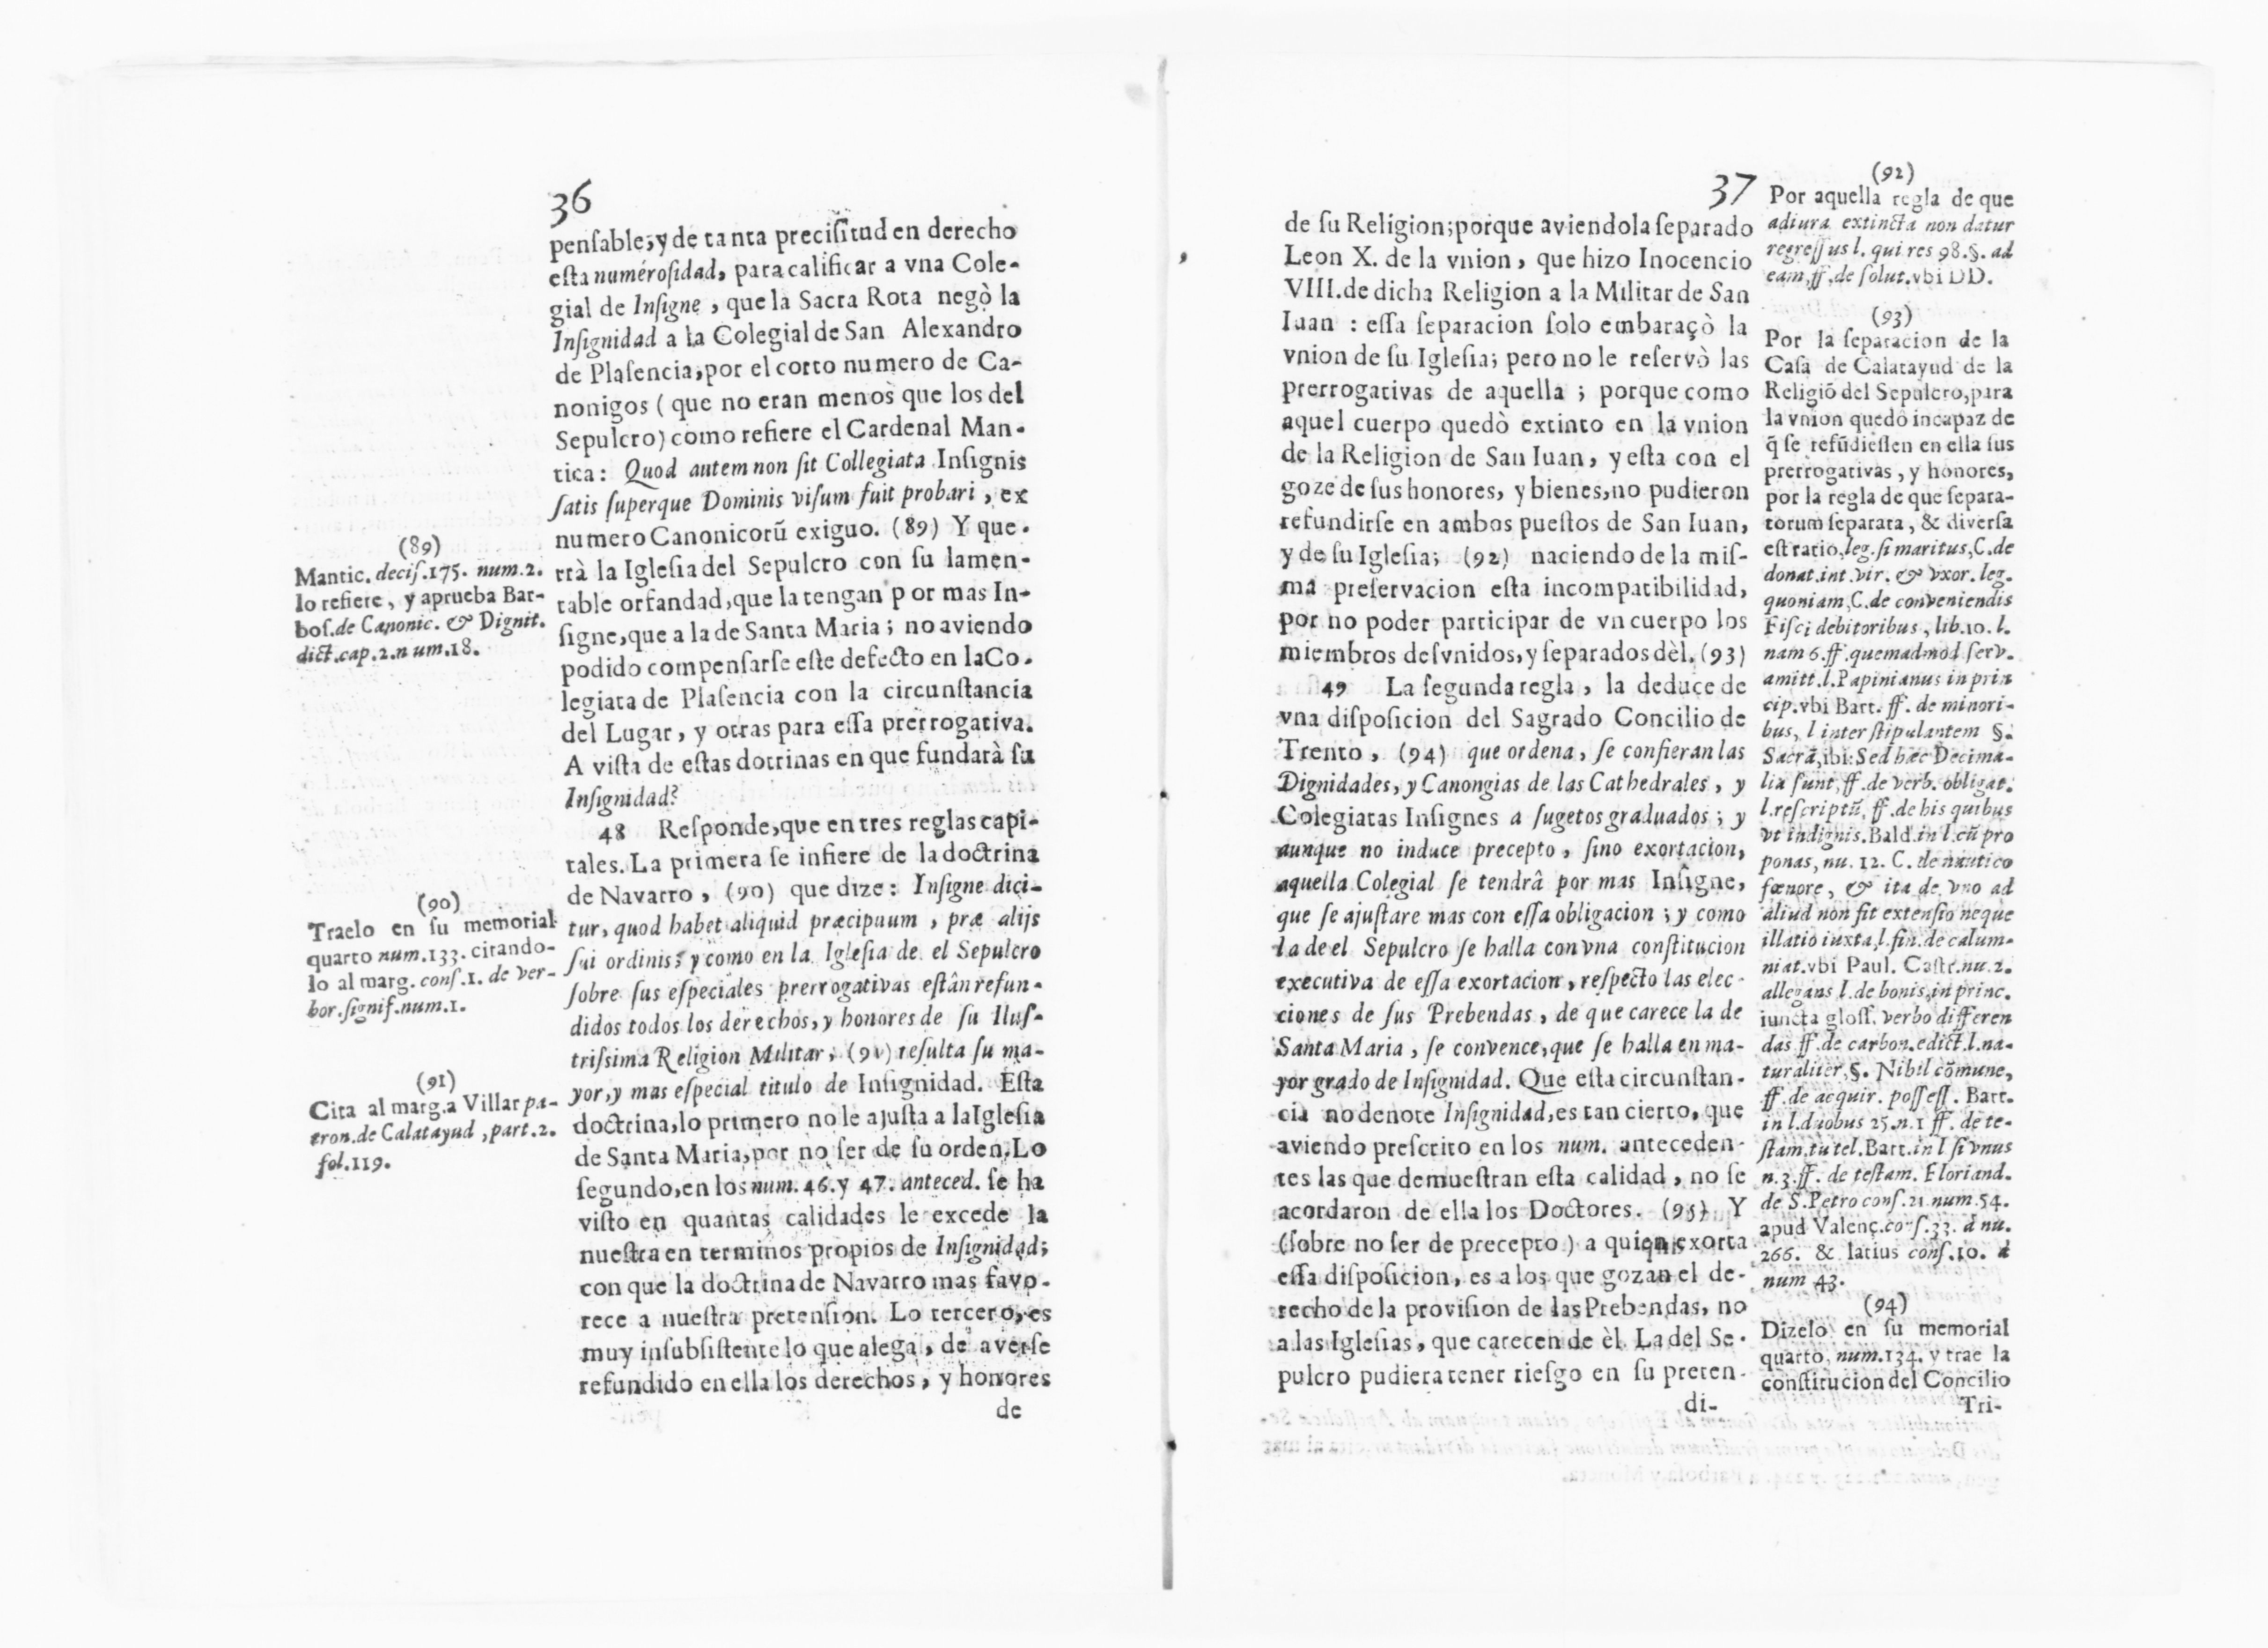 36
penſable; y de tanta preciſitud en derecho
eſta numéroſidad, para calificar a vna Cole-
gial de Inſigne, que la Sacra Rota negò la
Inſignidad a la Colegial de San Alexandro
de Plaſencia, por el corto numero de Ca-
nonigos ( que no eran menos que los del
Sepulcro) como refiere el Cardenal Man-
tica: Quod autem non ſit Collegiata Inſignis
ſatis ſuperque Dominis viſum fuit probari, ex
numero Canonicorũ exiguo. (89) Y que-
rrà la Igleſia del Sepulcro con ſu lamen-
table orfandad, que la tengan por mas In-
ſigne, que a la de Santa Maria; no aviendo
podido compenſarſe eſte defecto en la Co-
legiata de Plaſencia con la circunſtancia
del Lugar, y otras para eſſa prerrogativa.
A viſta de eſtas dotrinas en que fundarà ſu
Inſignidad?
48 Reſponde, que en tres reglas capi-
tales. La primera ſe infiere de la doctrina
de Navarro, (90) que dize: Inſigne dici-
tur, quod habet aliquid præcipuum, præ alijs
ſui ordinis; y como en la Igleſia de el Sepulcro
ſobre ſus eſpeciales prerrogativas eſtân refun-
didos todos los derechos, y honores de ſu Iluſ-
triſsima Religion Militar, (91) reſulta ſu ma-
yor, y mas eſpecial titulo de Inſignidad. Eſta
doctrina, lo primero no le ajuſta a la Igleſia
de Santa Maria, por no ſer de ſu orden. Lo
ſegundo, en los num. 46. y 47. anteced. ſe ha
viſto en quantas calidades le excede la
nueſtra en terminos propios de Inſignidad;
con que la doctrina de Navarro mas favo-
rece a nueſtra pretenſion. Lo tercero, es
muy inſubſiſtente lo que alega, de averſe
refundido en ella los derechos, y honores
de
(89)
Mantic. deciſ. 175. num. 2.
lo refiere, y aprueba Bar-
boſ. de Canonic. & Dignit.
dict. cap. 2. num. 18.
(90)
Traelo en ſu memorial
quarto num. 133. citando-
lo al marg. conſ. 1. de ver-
bor. ſignif. num. 1.
(91)
Cita al marg. a Villar pa-
tron. de Calatayud, part. 2.
fol. 119.
37
de ſu Religion; porque aviendola ſeparado
Leon X. de la vnion, que hizo Inocencio
VIII. de dicha Religion a la Militar de San
Iuan : eſſa ſeparacion ſolo embaraçò la
vnion de ſu Igleſia; pero no le reſervò las
prerrogativas de aquella ; porque como
aquel cuerpo quedò extinto en la vnion
de la Religion de San Iuan, y eſta con el
goze de ſus honores, y bienes, no pudieron
refundirſe en ambos pueſtos de San Iuan,
y de ſu Igleſia; (92) naciendo de la miſ-
ma preſervacion eſta incompatibilidad,
por no poder participar de vn cuerpo los
miembros deſvnidos, y ſeparados dèl. (93)
49 La ſegunda regla, la deduce de
vna diſpoſicion del Sagrado Concilio de
Trento, (94) que ordena, ſe confieran las
Dignidades, y Canongias de las Cathedrales, y
Colegiatas Inſignes a ſugetos graduados; y
aunque no induce precepto, ſino exortacion,
aquella Colegial ſe tendrâ por mas Inſigne,
que ſe ajuſtare mas con eſſa obligacion; y como
la de el Sepulcro ſe halla con vna conſtitucion
executiva de eſſa exortacion, reſpecto las elec-
ciones de ſus Prebendas, de que carece la de
Santa Maria, ſe convence, que ſe halla en ma-
yor grado de Inſignidad. Que eſta circunſtan-
cia no denote Inſignidad, es tan cierto, que
aviendo preſcrito en los num. anteceden-
tes las que demueſtran eſta calidad, no ſe
acordaron de ella los Doctores. (95) Y
(ſobre no ſer de precepto) a quien exorta
eſſa diſpoſicion, es a los que gozan el de-
recho de la proviſion de las Prebendas, no
a las Igleſias, que carecen de èl. La del Se-
pulcro pudiera tener rieſgo en ſu preten-
di-
(92)
Por aquella regla de que
ad iura extincta non datur
regreſſus l. qui res 98. §. ad
eam, ff. de ſolut. vbi DD.
(93)
Por la ſeparacion de la
Caſa de Calatayud de la
Religiõ del Sepulcro, para
la vnion quedò incapaz de
q̃ ſe refũdieſſen en ella ſus
prerrogativas, y honores,
por la regla de que ſepara-
torum ſeparata, & diverſa
eſt ratio, leg. ſi maritus, C. de
donat. int. vir. & vxor. leg.
quoniam, C. de conveniendis
Fiſci debitoribus, lib. 10. l.
nam 6. ff. quemadmod ſerv.
amitt. l. Papinianus in prin
cip. vbi Bart. ff. de minori-
bus, l inter ſtipulantem §.
Sacrã, ibi: Sed hæc Decima-
lia ſunt, ff. de verb. obligat.
l. reſcriptũ, ff. de his quibus
vt indignis. Bald. in l. cũ pro
ponas, nu. 12. C. de nautico
fœnore, & ita de vno ad
aliud non fit extenſio neque
illatio iuxta, l. fin. de calum-
niat. vbi Paul. Caſtr. nu. 2.
allegans l. de bonis, in princ.
iuncta gloſſ. verbo differen
das ff. de carbon. edict. l. na-
turaliter, §. Nihil cõmune,
ff. de acquir. poſſeſſ. Bart.
in l. duobus 25. n. 1 ff. de te-
ſtam. tutel. Bart. in l ſi vnus
n. 3. ff. de teſtam. Floriand.
de S. Petro conſ. 21. num. 54.
apud Valenç. conſ. 33. à nu.
266. & latius conſ. 10. à
num 43.
(94)
Dizelo en ſu memorial
quarto, num. 134. y trae la
conſtitucion del Concilio
Tri-